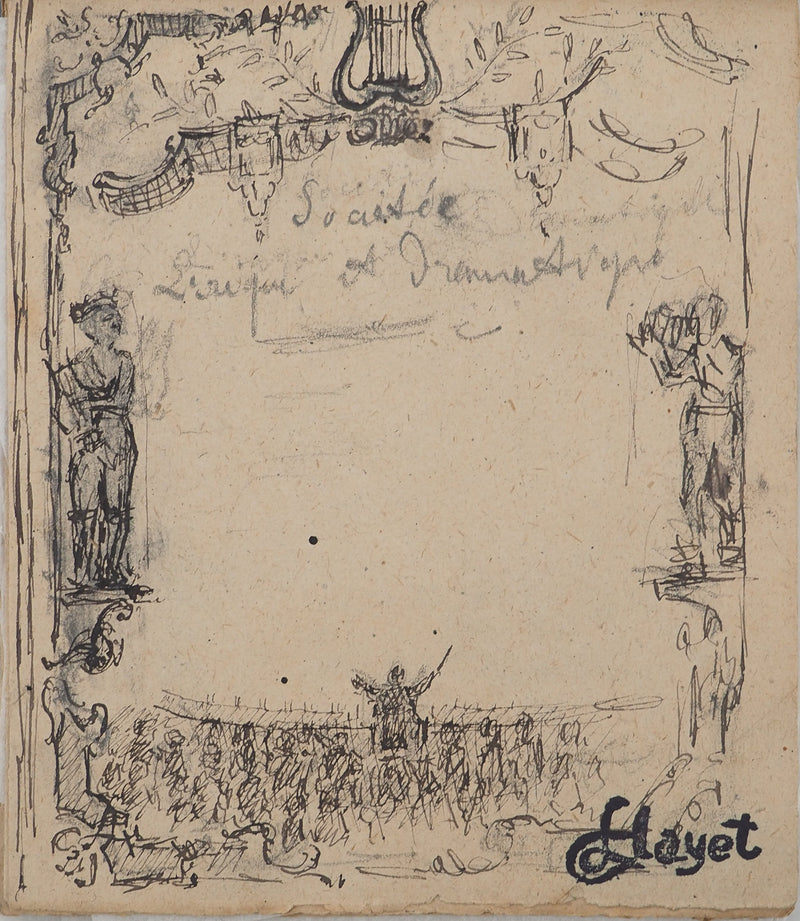 Société
Lirique et Dramatique
Hayet